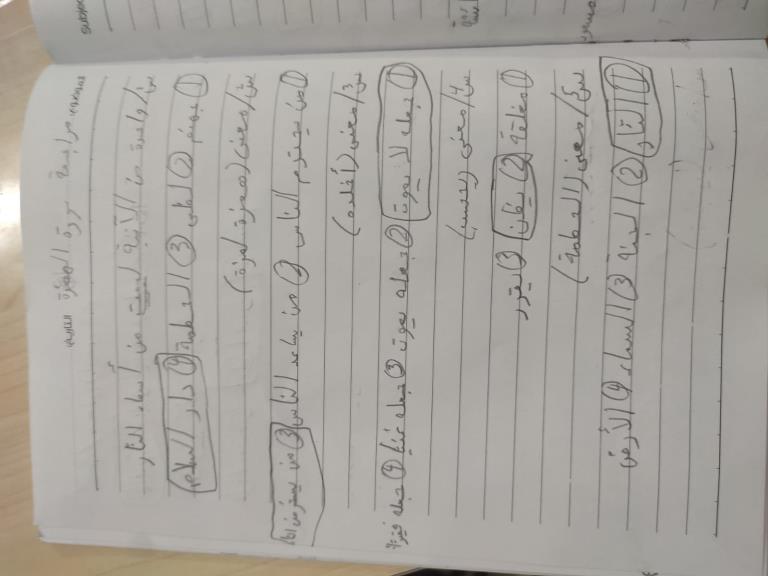 مراجعة سورة الهمزة
س١/ واحدة من الآتية ليست من أسماء النار
① جهنم ② لظى ③ الحطمة ④ دار السلام
س٢/ معنى (همزة لمزة)
① من يحترم الناس ② من يساعد الناس ③ من يسخر من
س٣/ معنى (أخلده)
① جعله لا يموت ② جعله يموت ③ جعله غنيا ④ جعله فقيرا
س٤/ معنى (يحسب)
① ② يظن ③ يقرر
س٥/ معنى (الحطمة)
① النار ② الجنة ③ السماء ④ الأرض